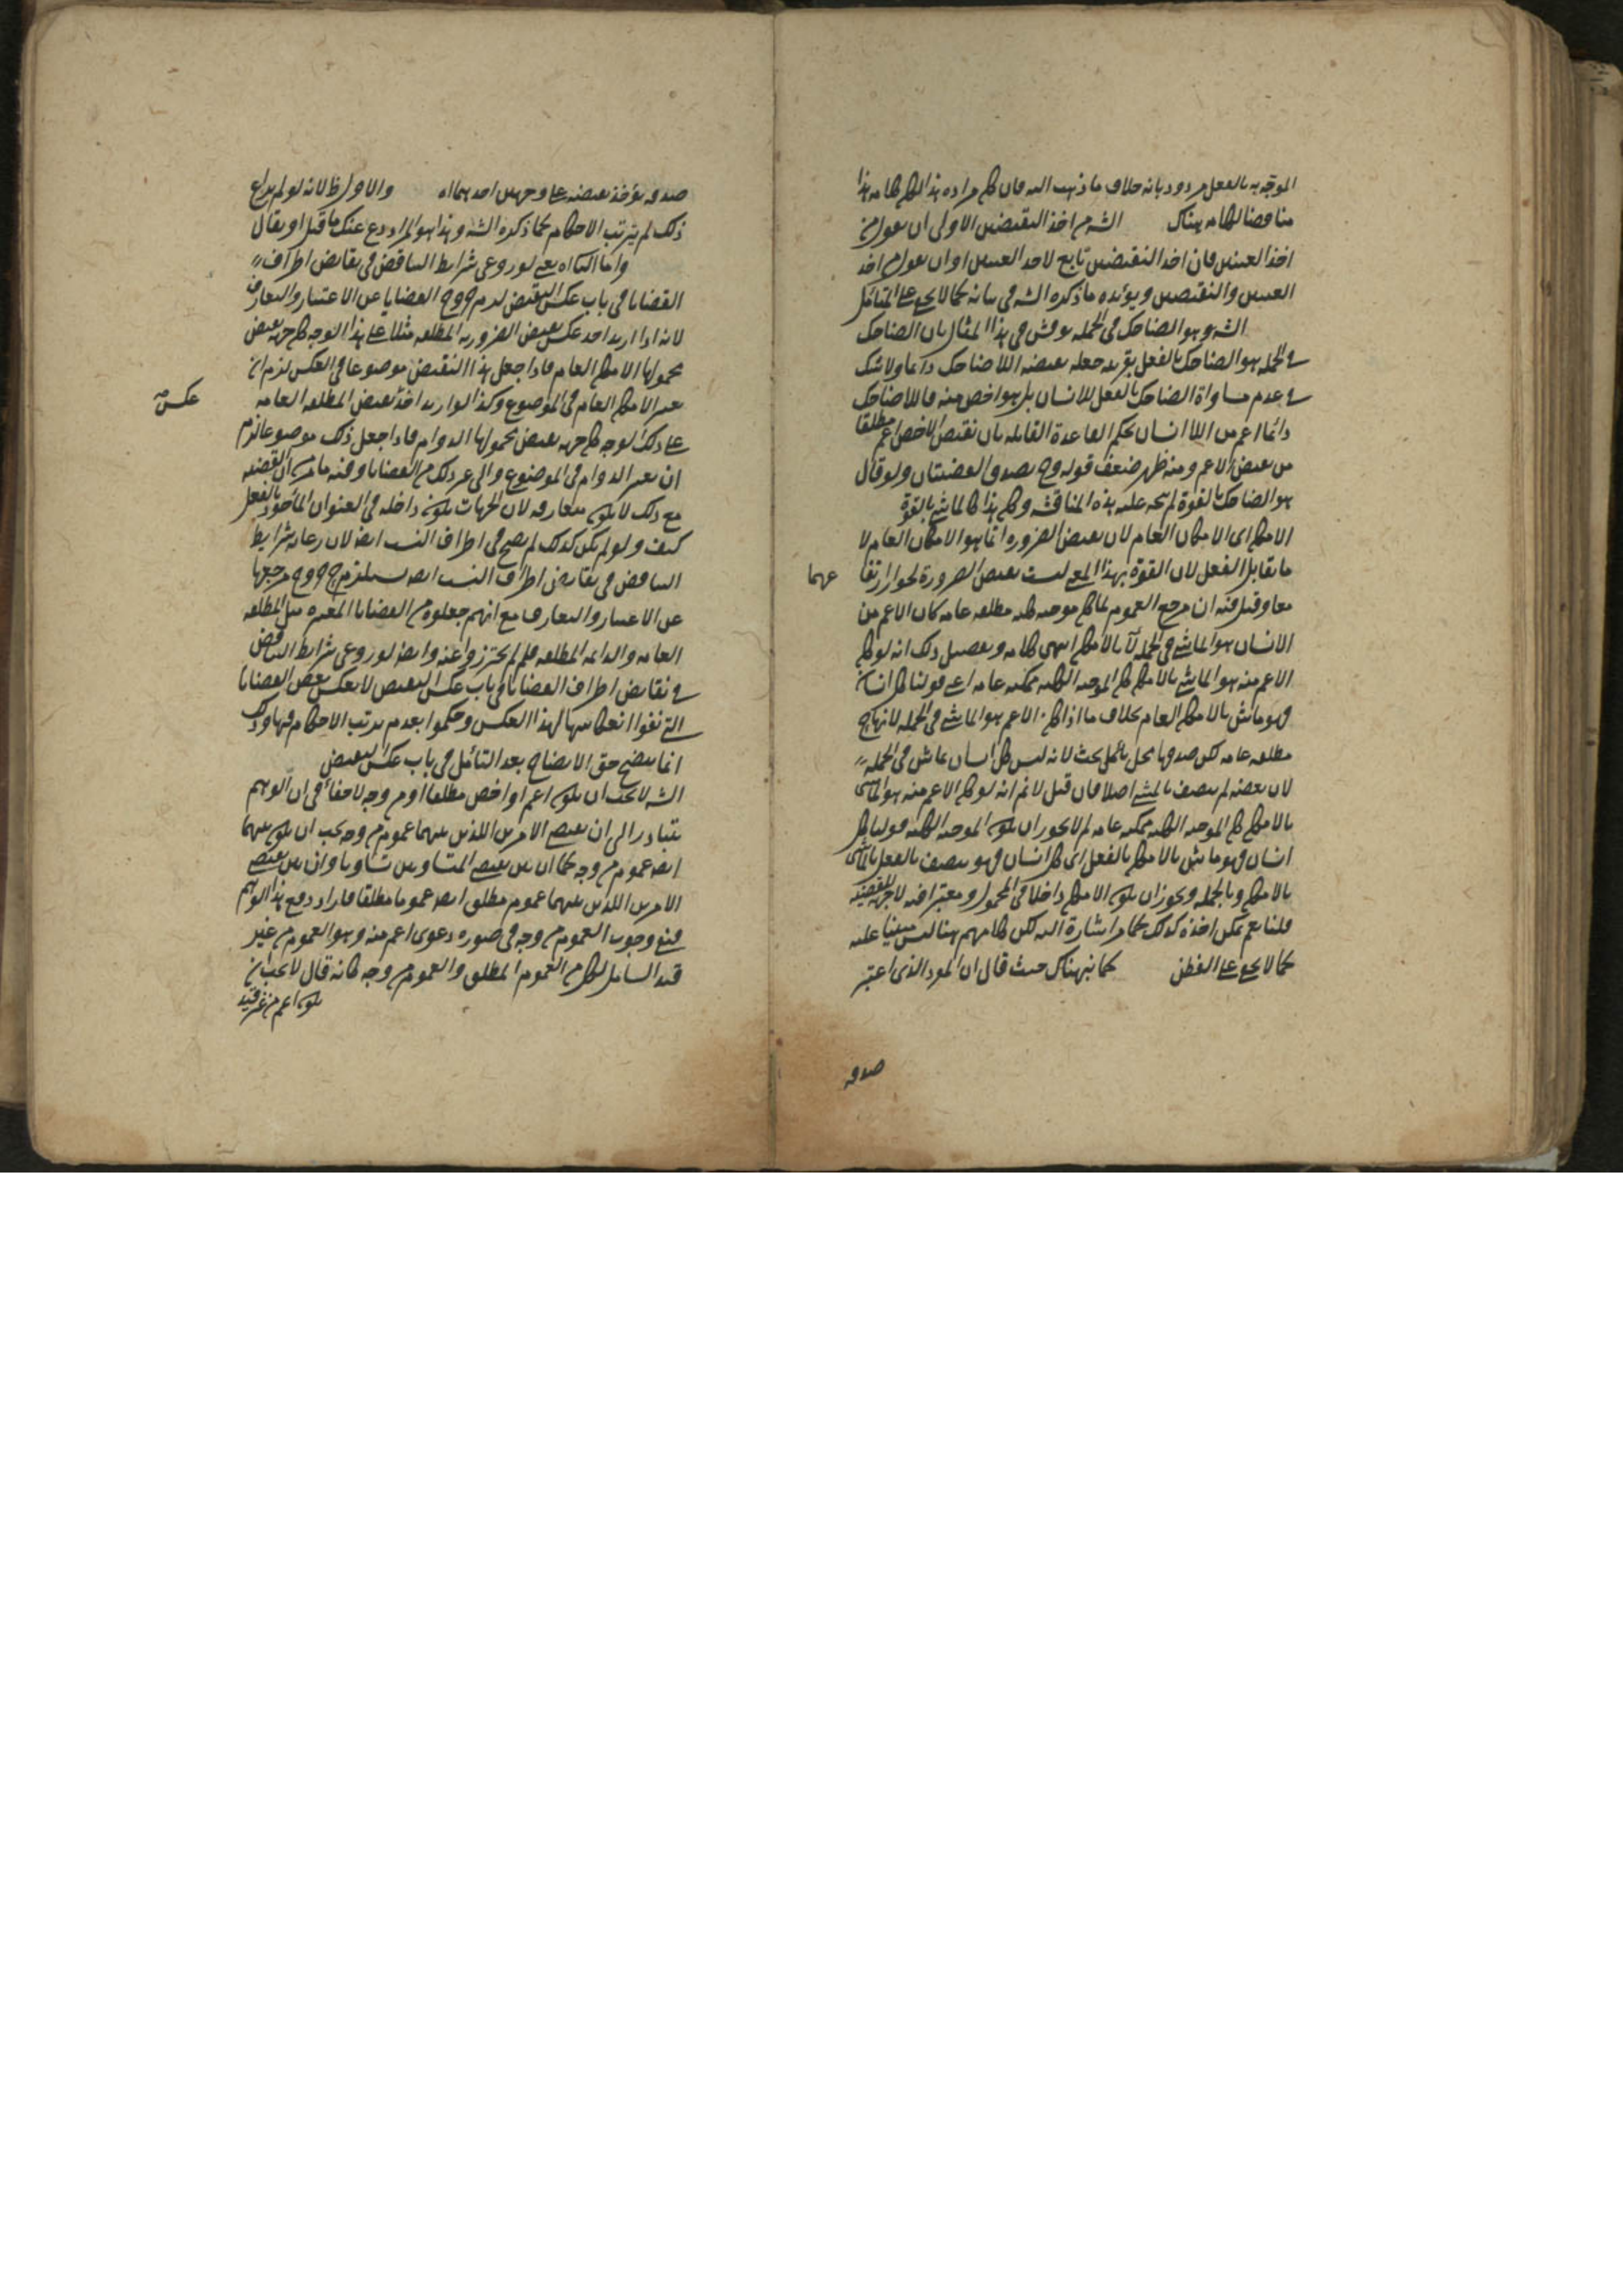 الموجّه بالفعل مردود بانه خلاف ما ذهب اليه فان كان مراده هذا لكان كلامه هذا
مناقضا لكلامه هناك الشه من اخذ النقيضين الاولى ان يقول من
اخذ العينين فان اخذ النقيضين تابع لاخذ العينين او ان يقول من اخذ
العينين والنقيضين ويؤيده ما ذكره الشه في بيانه كما لا يخفى على المتأمّل
الشه وهو الضاحك في الجمله نوقش في هذا المثال بان الضاحك
في الجمله هو الضاحك بالفعل بقرينه جعله نقيضه اللا ضاحك دائما ولا شك
في عدم مساواة الضاحك بالفعل للانسان بل هو اخص منه فاللا ضاحك
دائما اعم من اللا انسان بحكم القاعدة القايله بان نقيض الاخص اعم مطلقا
من نقيض الاعم ومنه ظهر ضعف قوله وح يصدق القضيتان ولو قال
هو الضاحك بالقوة لم يتجه عليه هذه المناقشه وكان هذا كالماشي بالقوة
الامكان اى الامكان العام لان نقيض الضروره انما هو الامكان العام لا
ما يقابل الفعل لان القوة بهذا المعنى ليست نقيض الضرورة لجواز ارتفا عهما
معا وقيل فيه ان مرجع العموم لما كان موجبه كليه مطلقه عامه كان الاعم من
الانسان هو الماشي في الجمله لا بالامكان انتهى كلامه وتفصيل ذلك انه لو كان
الاعم منه هو الماشي بالامكان كان الموجبه الكليه ممكنه عامه اعني قولنا كل انسان
فهو ماش بالامكان العام بخلاف ما اذا كان الاعم هو الماشي في الجمله لانها ح
مطلقه عامه لكن صدقها محل بحث لانه ليس كل انسان بماش في الجمله
لان بعضه لم يتصف بالمشي اصلا فان قيل لا نم انه لو كان الاعم منه هو الماشي
بالامكان كان الموجبه الكليه ممكنه عامه لم لا يجوز ان يكون الموجبه الكليه قولنا كل
انسان فهو ماش بالامكان بالفعل اى كل انسان فهو متصف بالفعل بالماشي
بالامكان وبالجمله ويجوز ان يكون الامكان داخلا في المحمول ومعتبرا فيه لا جهة للقضيه
قلنا نعم يمكن اخذه كذلك كما مر اشارة اليه لكن كلامهم هنا ليس مبنيا عليه
كما لا يخفى على الفطن كما نبه هناك حيث قال ان المورد الذى اعتبر
صدقه
صدقه يؤخذ نقيضه على وجهين احدهما اه والاول ظ لانه لو لم يراع
ذلك لم يترتب الاحكام كما ذكره الشه وهذا هو المراد ودع عنك ما قيل او يقال
واما الثانى اه يعنى لو روعى شرايط التناقض في نقايض اطراف
القضايا في باب عكس النقيض لزم خروج القضايا عن الاعتبار والتعارف
لانه اذا اريد اخذ عكس نقيض الضروريه المطلقه مثلا على هذا الوجه كان جهة نقيض
محمولها الامكان العام فاذا جعل هذا النقيض موضوعا في العكس لزم ان
يعتبر الامكان العام في الموضوع وكذا لو اريد اخذ نقيض المطلقه العامه عكس صح
على ذلك الوجه كان جهة نقيض محمولها الدوام فاذا جعل ذلك موضوعا لزم
ان يعتبر الدوام في الموضوع والى غير ذلك من القضايا وفيه ما مر من ان القضيه
مع ذلك لا يكون متعارفه لان الجهات يكون داخله في العنوان المأخوذ بالفعل
كيف ولو لم يكن كذلك لم يصح في اطراف النسب ايضا لان رعايه شرايط
التناقض في نقايض اطراف النسب ايضا يستلزم خروج مرجعها
عن الاعتبار والتعارف مع انهم جعلوه من القضايا المعتبره مثل المطلقه
العامه والدائمه المطلقه فلم لم يحترزوا عنه وايضا لو روعى شرايط التناقض
في نقايض اطراف القضايا في باب عكس النقيض لانعكس بعض القضايا
التي نفوا انعكاسها لهذا العكس وحكموا بعدم ترتب الاحكام فيها وذلك
انما يتضح حق الايضاح بعد التأمّل في باب عكس النقيض
الشه لا يجب ان يكون اعم او اخص مطلقا او من وجه لا خفأ في ان الوهم
يتبادر الى ان نقيض الامرين اللذين بينهما عموم من وجه يجب ان يكون بينهما
ايضا عموم من وجه كما ان بين نقيضي المتساويين تساويا وان بين نقيضي
الامرين اللذين بينهما عموم مطلق ايضا عموما مطلقا فاراد دفع هذا الوهم
فمنع وجوب العموم من وجه في صوره دعوى اعم منه وهو العموم من غير
قيد الشامل لكل من العموم المطلق والعموم من وجه كانه قال لا يجب ان
يكون اعم من غير قيد